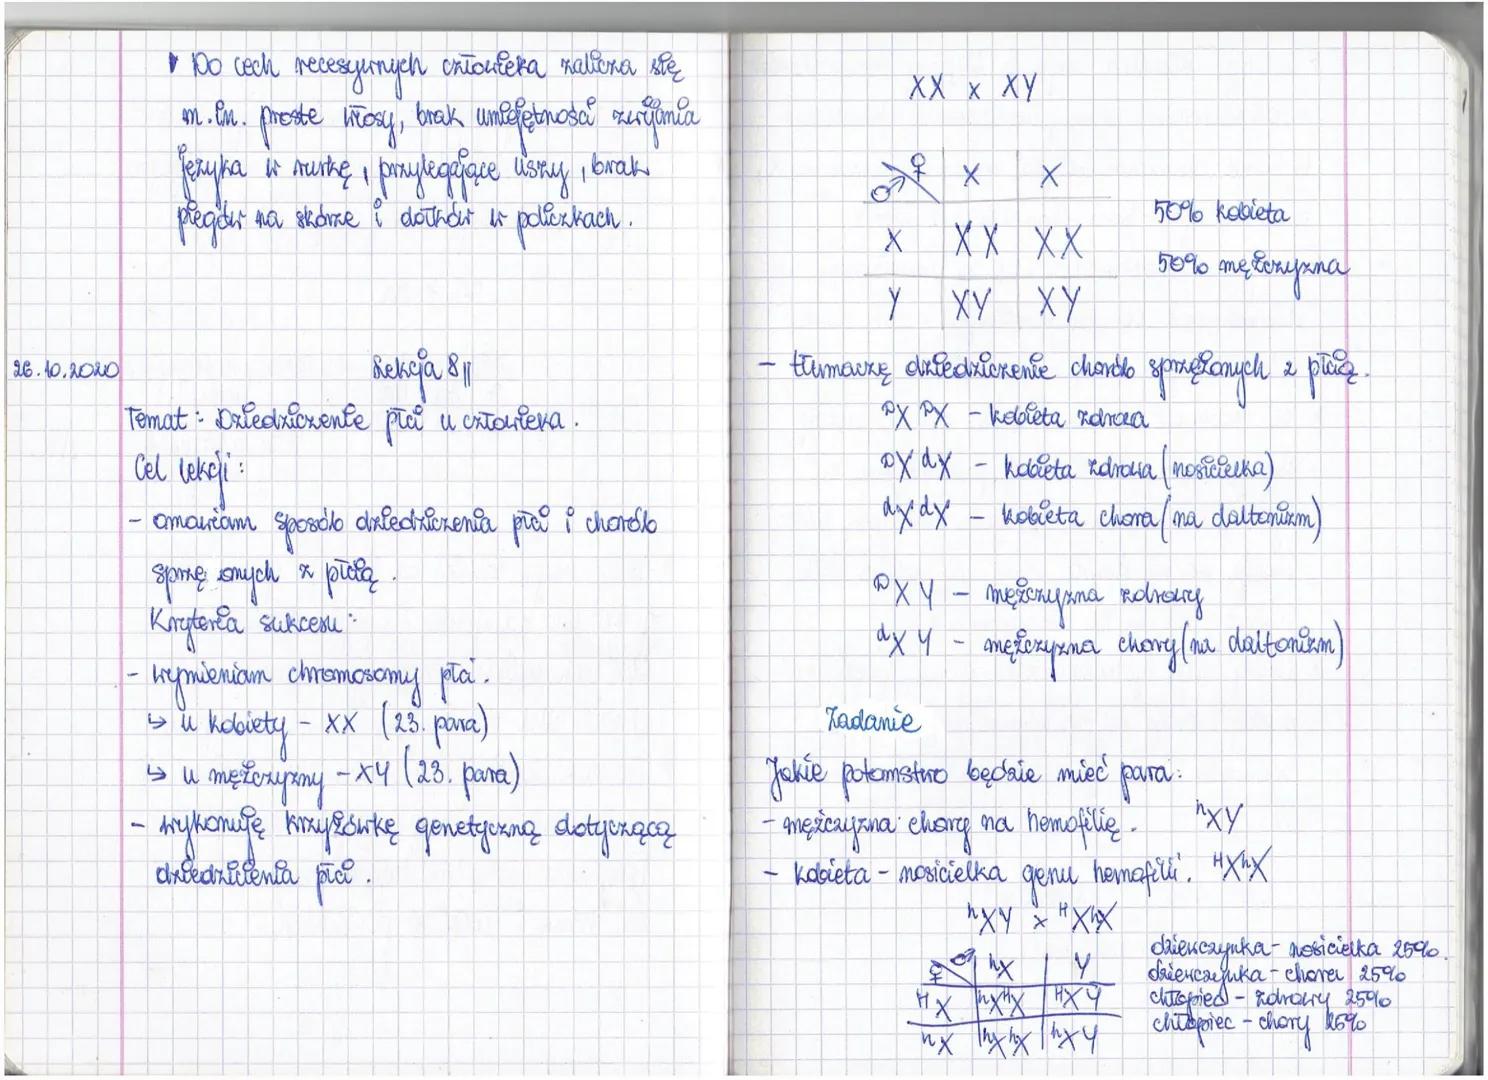 Do cech recesywnych człowieka zalicza się
m.in. proste włosy, brak umiejętności zwijania
języka w rurkę, przylegające uszy, brak
piegów na skórze i dołków w policzkach.
26.10.2020
Lekcja 8
Temat: Dziedziczenie płci u człowieka.
Cel lekcji:
- omawiam sposób dziedziczenia płci i chorób
sprzę onych z płcią.
Kryteria sukcesu:
- wymieniam chromosomy płci.
↳ u kobiety - XX (23. para)
↳ u mężczyzny - XY (23. para)
- wykonuję krzyżówkę genetyczną dotyczącą
dziedziczenia płci.
XX x XY
♂ ♀ X X
X XX XX
Y XY XY
50% kobieta
50% mężczyzna
- tłumaczę dziedziczenie chorób sprzężonych z płcią.
ᴰX ᴰX - kobieta zdrowa
ᴰX ᵈX - kobieta zdrowa (nosicielka)
ᵈX ᵈX - kobieta chora (na daltonizm)
ᴰX Y - mężczyzna zdrowy
ᵈX Y - mężczyzna chory (na daltonizm)
Zadanie
Jakie potomstwo będzie mieć para:
- mężczyzna chory na hemofilię. ʰXY
- kobieta - nosicielka genu hemofilii. ᴴXʰX
ʰXY x ᴴXʰX
♀ ♂ ʰX Y
ᴴX ʰXᴴX ᴴXY
ʰX ʰXʰX ʰXY
dziewczynka - nosicielka 25%.
dziewczynka - chora 25%
chłopiec - zdrowy 25%
chłopiec - chory 25%